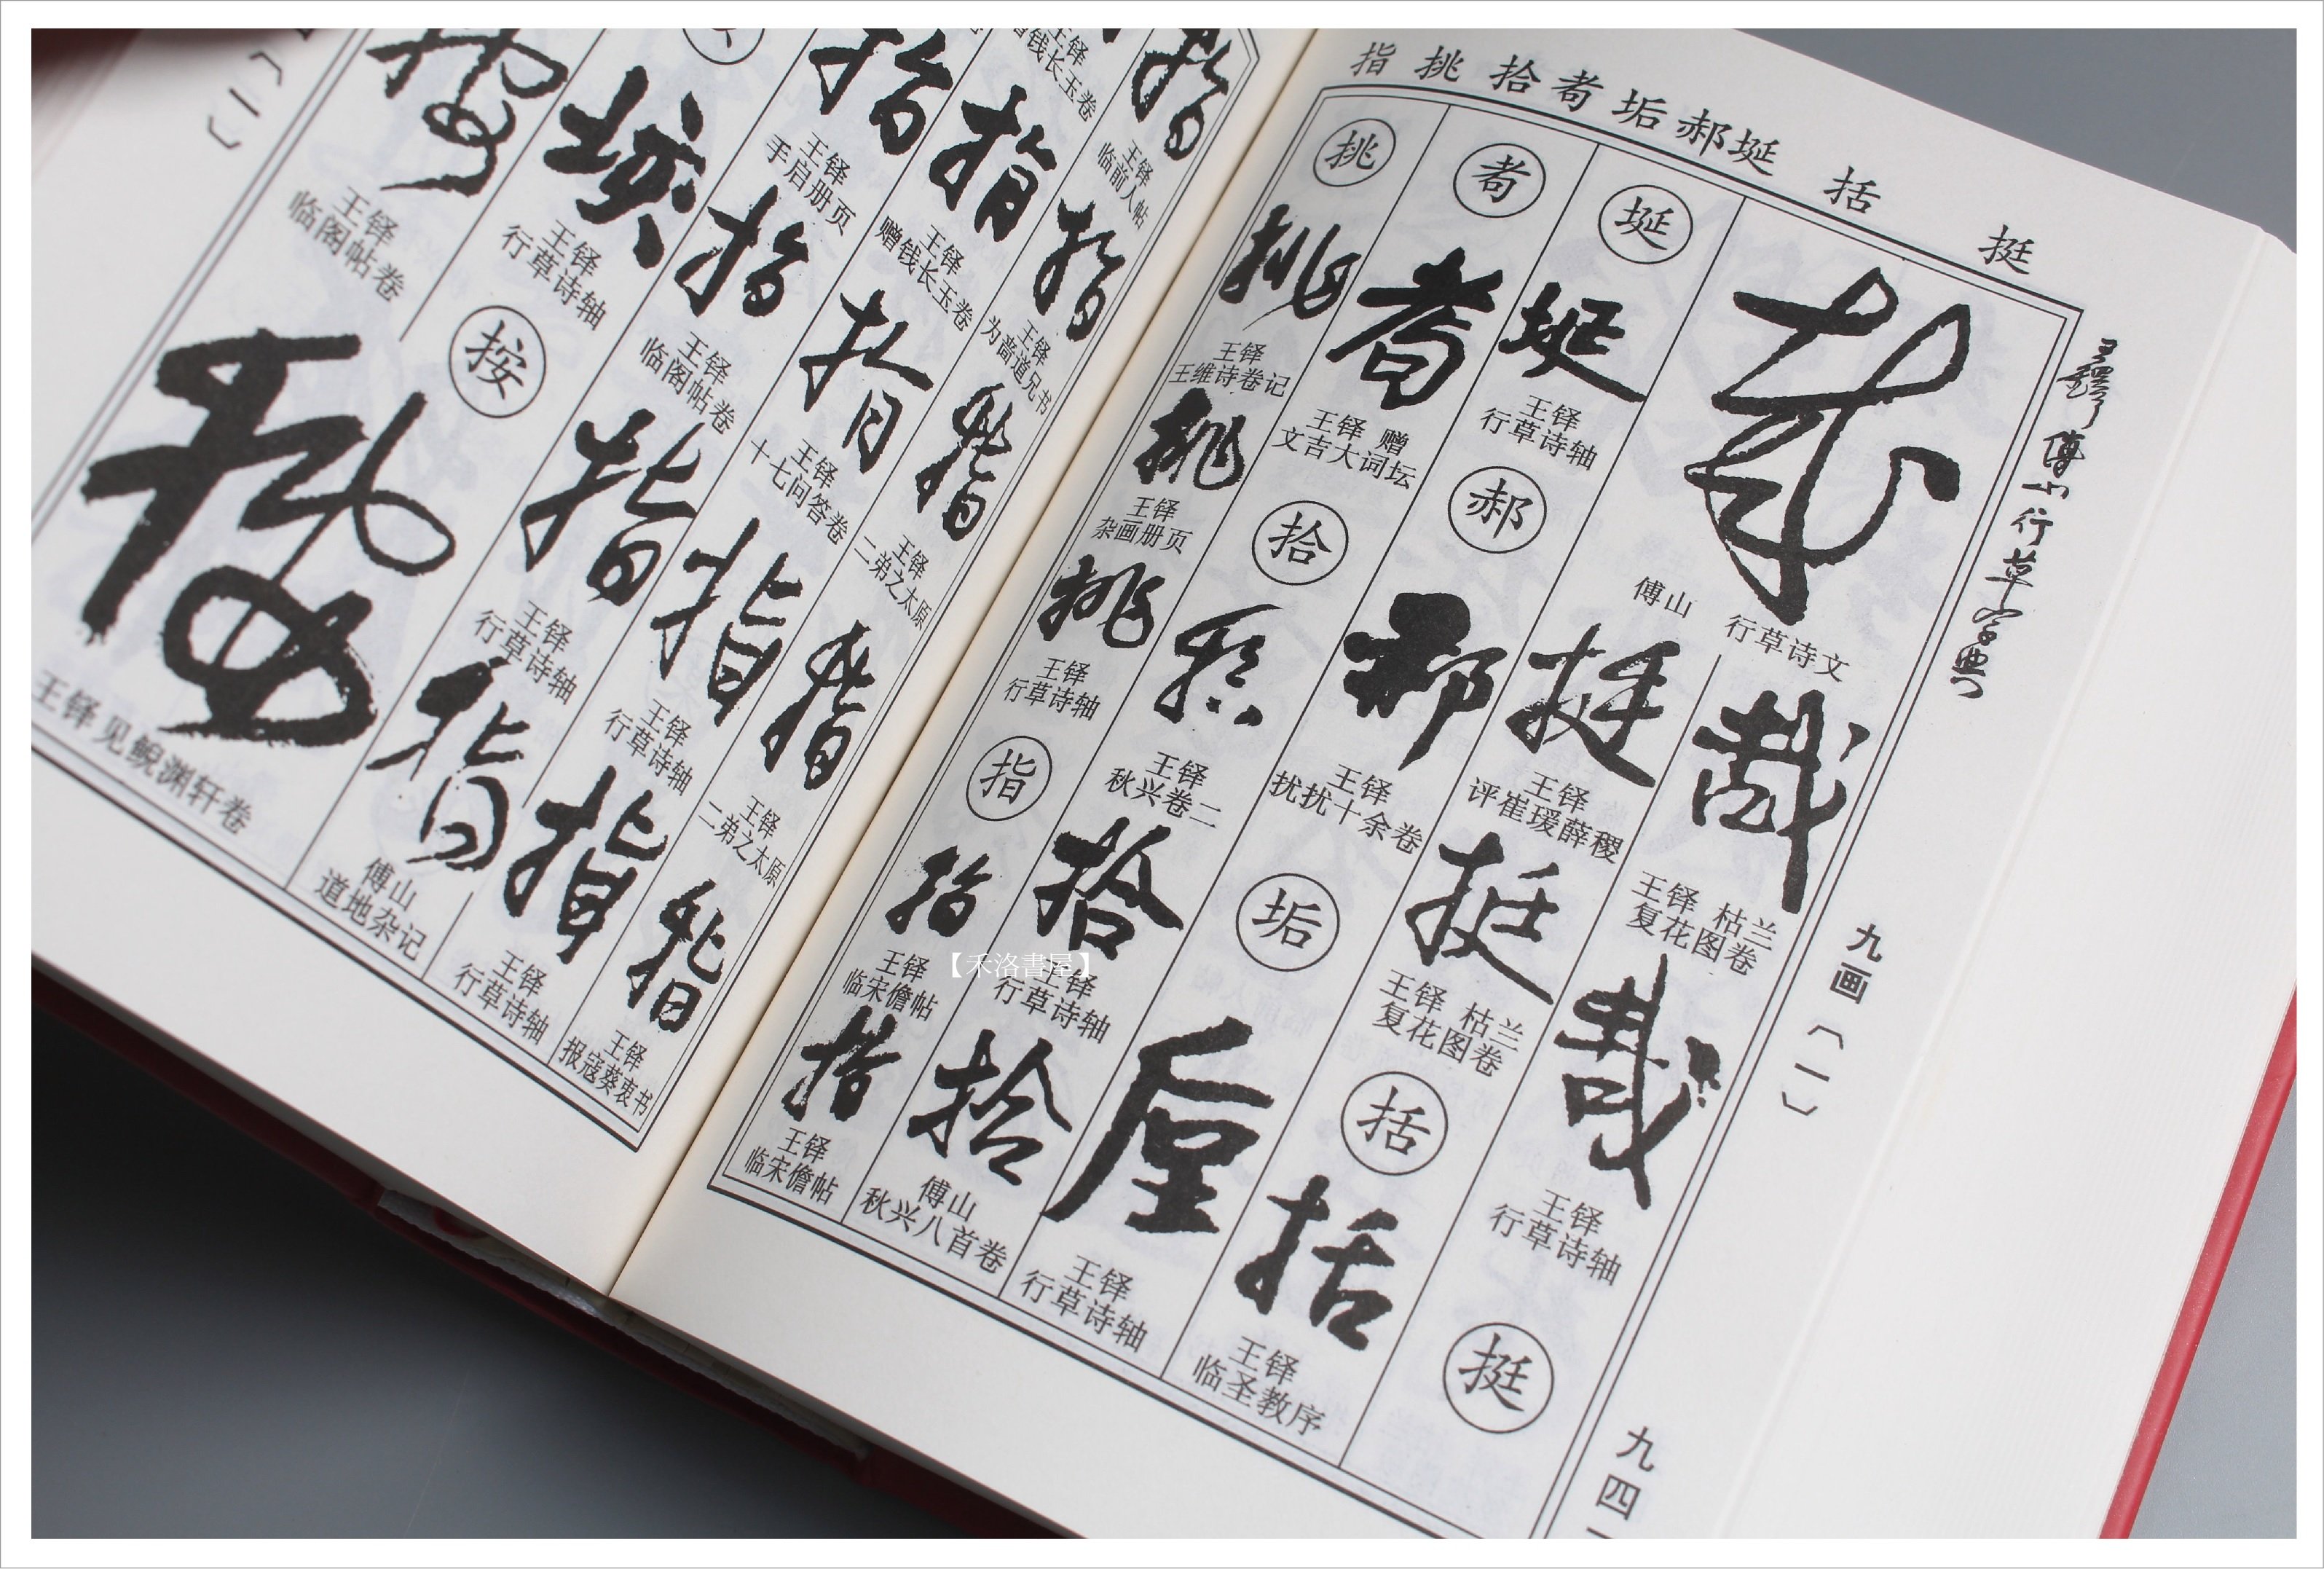 指 挑 拾 耇 垢 郝 埏 括 挺
王铎傅山行草字典
九画〔一〕
九四一
傅山
行草诗文
哉
王铎 枯兰
复花图卷
哉
王铎
行草诗轴
挺
埏
埏
王铎
行草诗轴
挺
王铎
评崔瑗薛稷
挺
王铎 枯兰
复花图卷
括
括
王铎
临圣教序
耇
耇
王铎 赠
文吉大词坛
郝
郝
王铎
扰扰十余卷
垢
垕
王铎
行草诗轴
挑
挑
王铎
王维诗卷记
拾
拾
王铎
秋兴卷二
拾
王铎
行草诗轴
拾
傅山
秋兴八首卷
挑
王铎
杂画册页
挑
王铎
行草诗轴
指
指
王铎
临宋儋帖
指
王铎
临宋儋帖
指
王铎
临前人帖
指
王铎
为啬道兄书
指
王铎
二弟之太原
指
王铎
二弟之太原
指
王铎
报寇葵衷书
王铎
赠钱长玉卷
指
王铎
赠钱长玉卷
指
王铎
十七问答卷
指
王铎
行草诗轴
指
王铎
行草诗轴
指
王铎
手启册页
指
王铎
临阁帖卷
指
王铎
行草诗轴
指
傅山
道地杂记
王铎
行草诗轴
按
王铎
临阁帖卷
王铎 见鲵渊轩卷
〔一〕
【禾洛書屋】